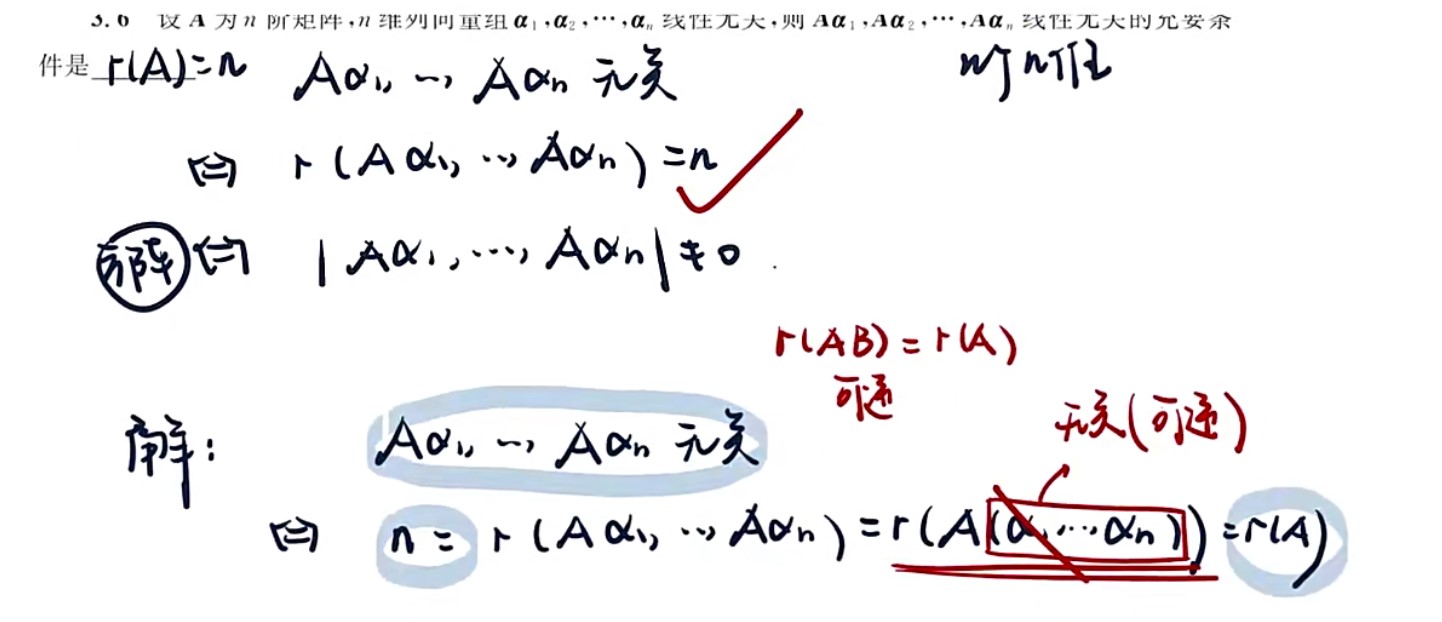 3.6 设 A 为 n 阶矩阵,n 维列向量组 α₁,α₂,⋯,αₙ 线性无关,则 Aα₁,Aα₂,⋯,Aαₙ 线性无关的充要条
件是 r(A)=n
Aα₁, ⋯, Aαₙ 无关
n个n维
⇔ r(Aα₁, ⋯, Aαₙ)=n
方阵 ⇔ |Aα₁, ⋯, Aαₙ|≠0
r(AB)=r(A)
可逆
无关(可逆)
解: Aα₁, ⋯, Aαₙ 无关
⇔ n = r(Aα₁, ⋯, Aαₙ) = r(A(α₁⋯αₙ)) = r(A)